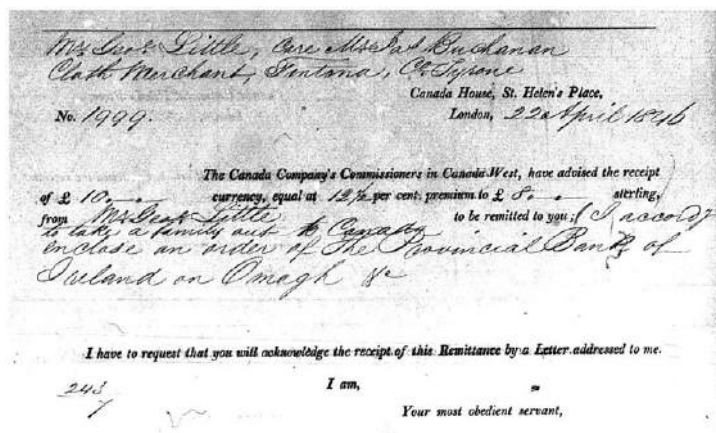 Mr Geo. Little, Care Mr Jas Buchanan
Cloth Merchant, Fintona, Co. Tyrone
Canada House, St. Helen's Place,
No. 1999. London, 22d April 1846
The Canada Company's Commissioners in Canada West, have advised the receipt
of £ 10 . . currency, equal at 12½ per cent. premium to £ 8 . . sterling,
from Mr Geo. Little to be remitted to you; I accordy
to take a family out to Canada
enclose an order of The Provincial Bank of
Ireland on Omagh &c
I have to request that you will acknowledge the receipt of this Remittance by a Letter addressed to me.
243
7
I am,
Your most obedient servant,